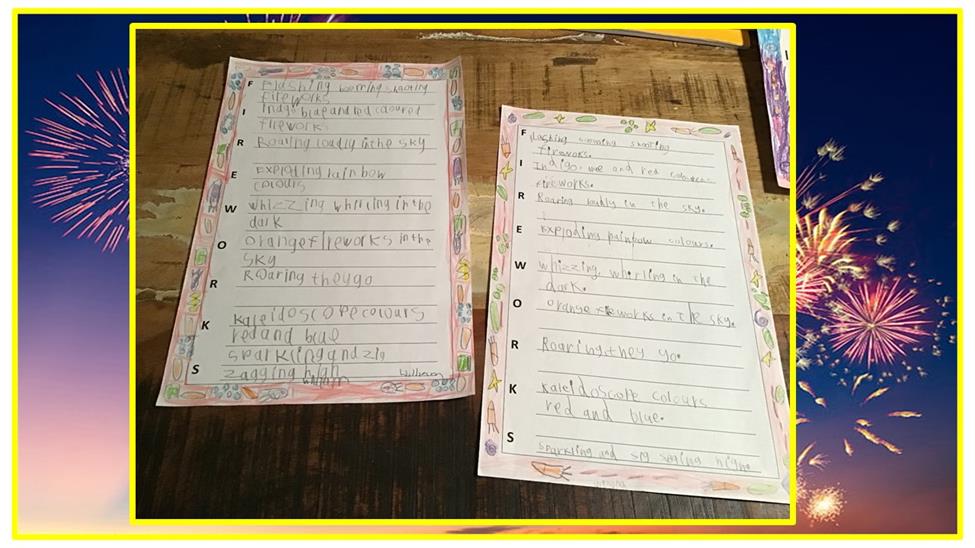 F Flashing shooting
fireworks
I Indigo blue and red coloured
fireworks
R Roaring loudly in the sky
E Exploding rainbow
colours
W whizzing whirling in the
dark
O orange fireworks in the
sky
R Roaring they go
K Kaleidoscope colours
red and blue
S Sparkling and zig
zagging high
William
F Flashing shooting
fireworks.
I Indigo and red
fireworks.
R Roaring loudly in the sky.
E Exploding rainbow colours.
W Whizzing, whirling in the
dark.
O orange fireworks in the sky.
R Roaring they go.
K Kaleidoscope colours
red and blue.
S Sparkling and high.